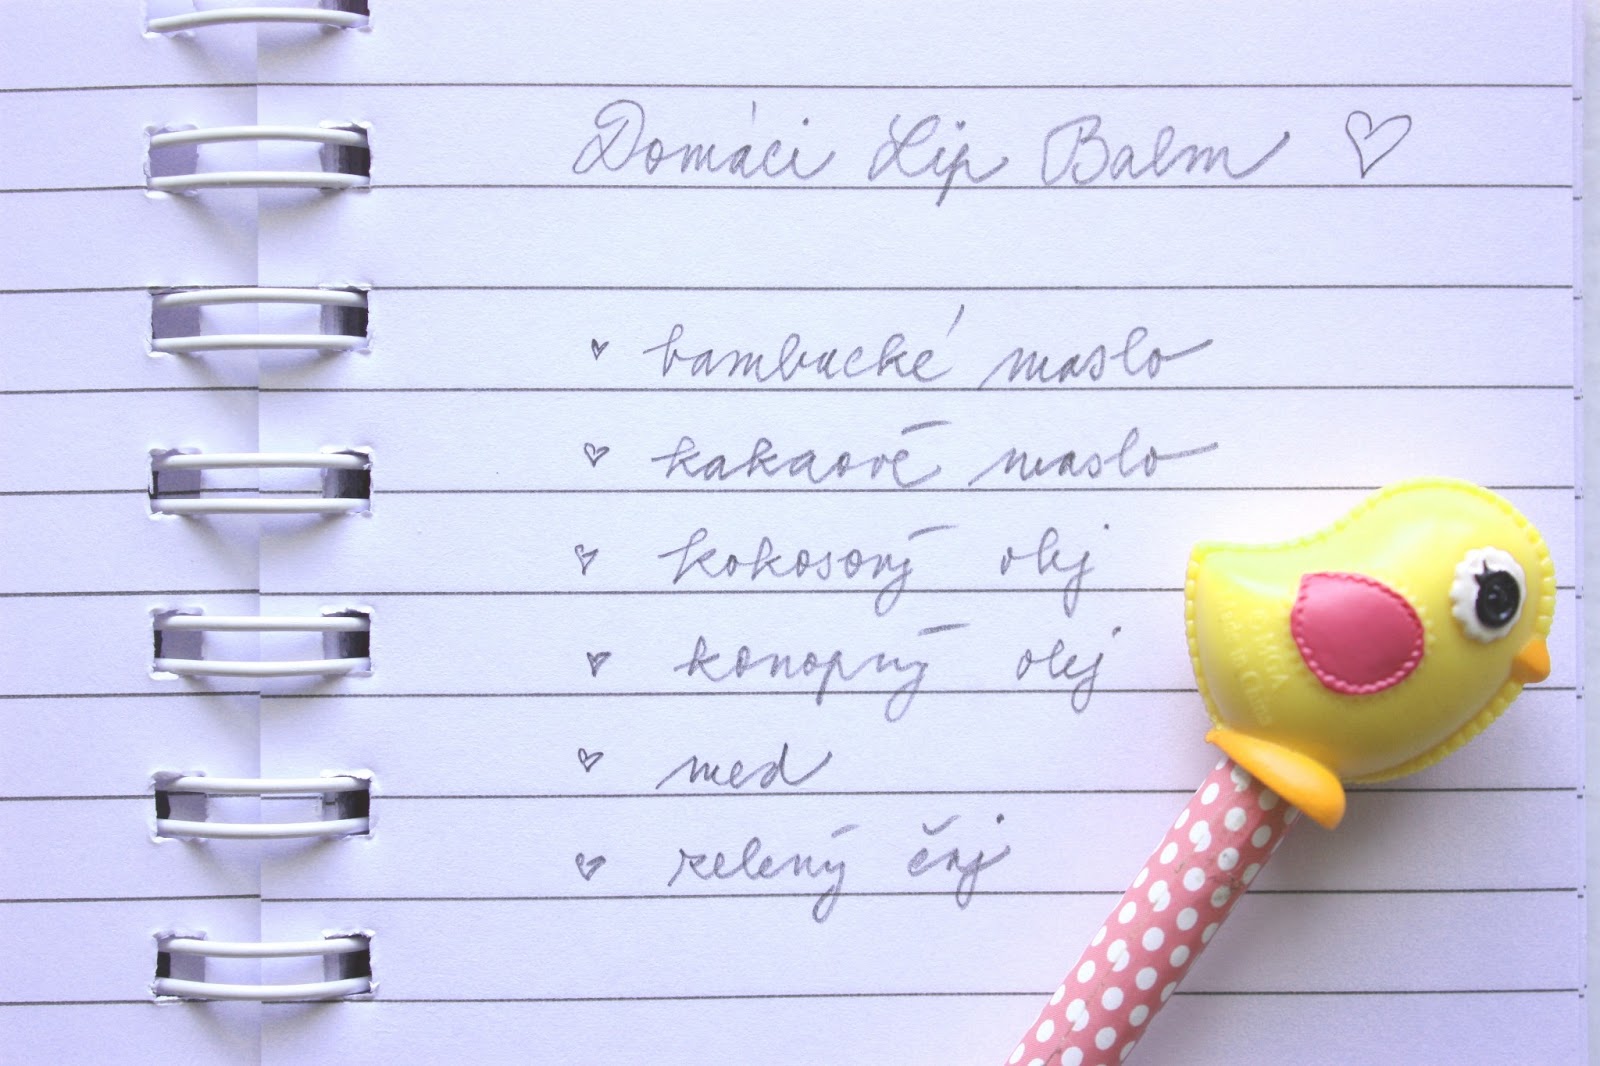 Domáci Lip Balm
bambucké maslo
kakaové maslo
kokosový olej
konopný olej
med
zelený čaj
© MGA
Made in China